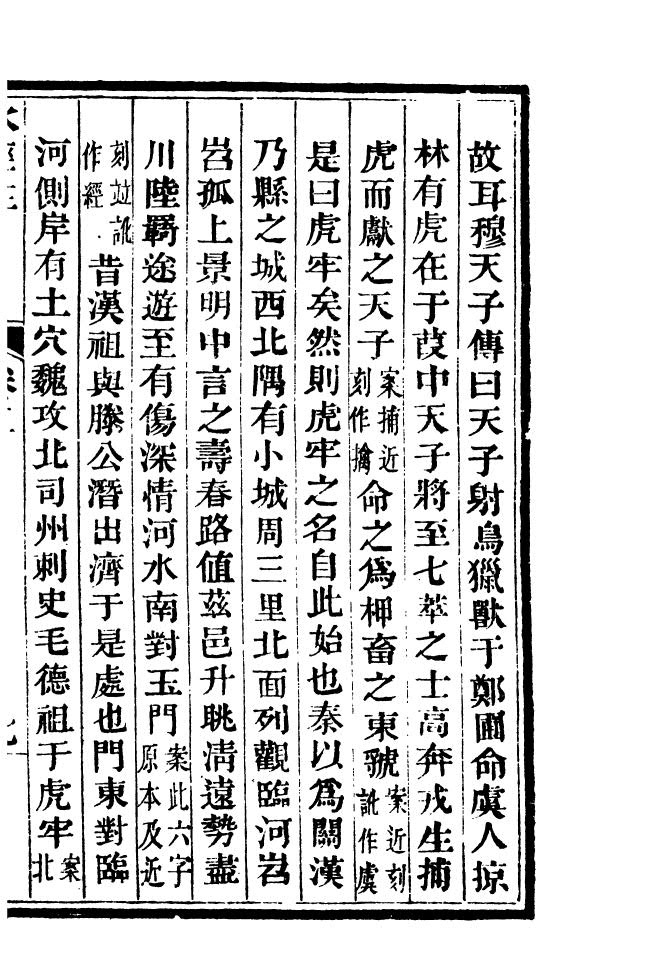 故耳穆天子傳曰天子射鳥獵獸于鄭圃命虞人掠
林有虎在于葭中天子將至七萃之士高奔戎生捕
虎而獻之天子案捕近刻作擒命之爲柙畜之東虢案近刻訛作虞
是曰虎牢矣然則虎牢之名自此始也秦以爲關漢
乃縣之城西北隅有小城周三里北面列觀臨河岧
岧孤上景明中言之壽春路值茲邑升眺清遠勢盡
川陸羇途遊至有傷深情河水南對玉門案此六字原本及近
刻竝訛作經昔漢祖與滕公潛出濟于是處也門東對臨
河側岸有土穴魏攻北司州刺史毛德祖于虎牢案北